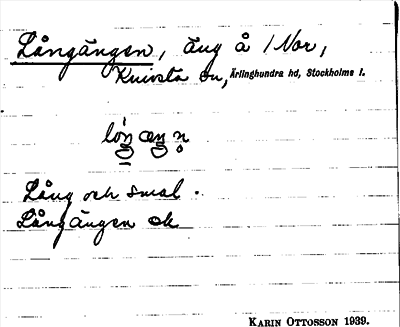 Långängen, äng å /Nor,
Knivsta sn, Ärlinghundra hd, Stockholms l.
lóŋæŋn̥
Lång och smal.
Långängen ek
KARIN OTTOSSON 1939.